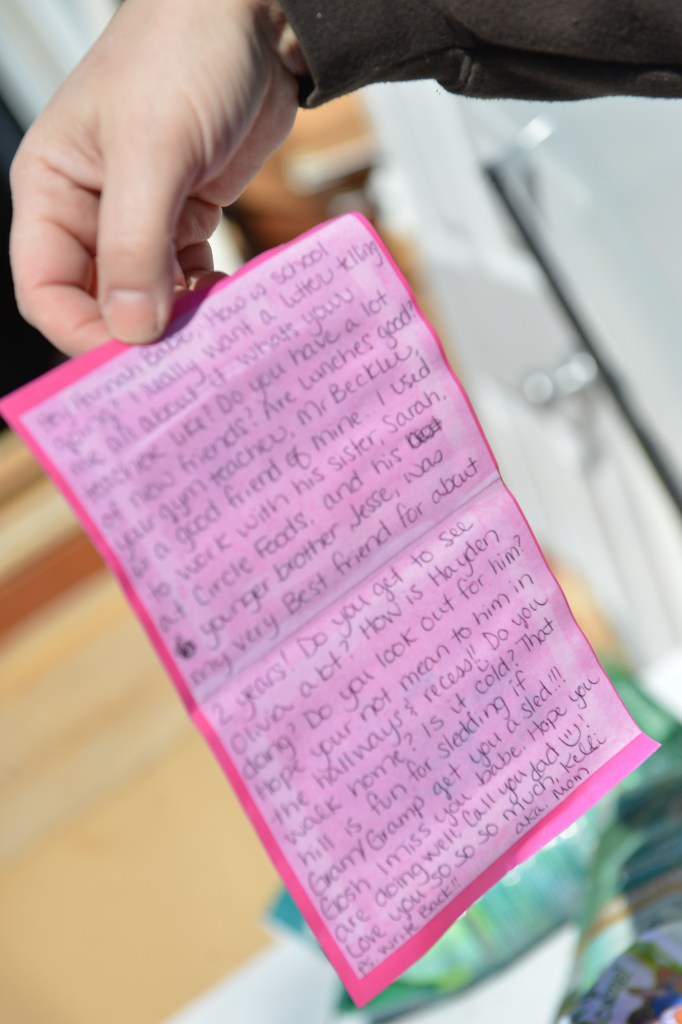 Hey Hannah Babe, How is school
going? I really want a letter telling
me all about it. whats your
teacher like? Do you have a lot
of new friends? Are lunches good?
your gym teacher, Mr Beckler,
is a good friend of mine. I used
to work with his sister, Sarah,
at Circle Foods, and his
younger brother, Jesse, was
my very Best friend for about
2 years! Do you get to see
Olivia a bt? How is Hayden
doing? Do you look out for him?
Hope your not mean to him in
the hallways & recess!! Do you
walk home? Is it cold? That
hill is fun for sledding if
Gram/Gramp get you a sled!!!
Gosh I miss you babe. Hope you
are doing well. Call you dad !!
Love you so so so much, Kelli
aka. Mom
Ps. Write Back!!